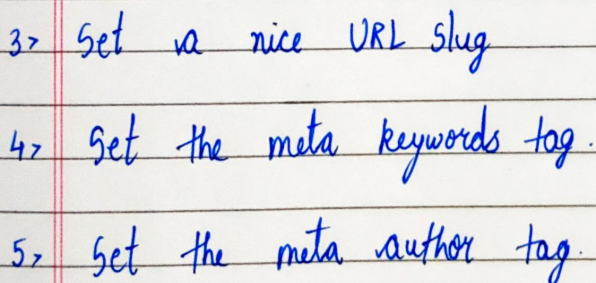 3> Set a nice URL slug
4> Set the meta keywords tag.
5> Set the meta author tag.